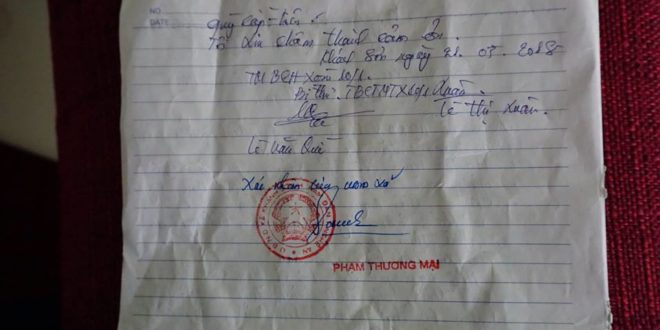 NO.
DATE
quý cấp trên
Tôi xin chân thành cảm ơn.
Khánh Sơn ngày 21.03.2018
TM BCH xóm 10/1.
Bí thư. TBCTMTX10/1 Xuân
Lê Thị Xuân.
Lê Văn Quế
Xác nhận của xã
PHẠM THƯƠNG MẠI